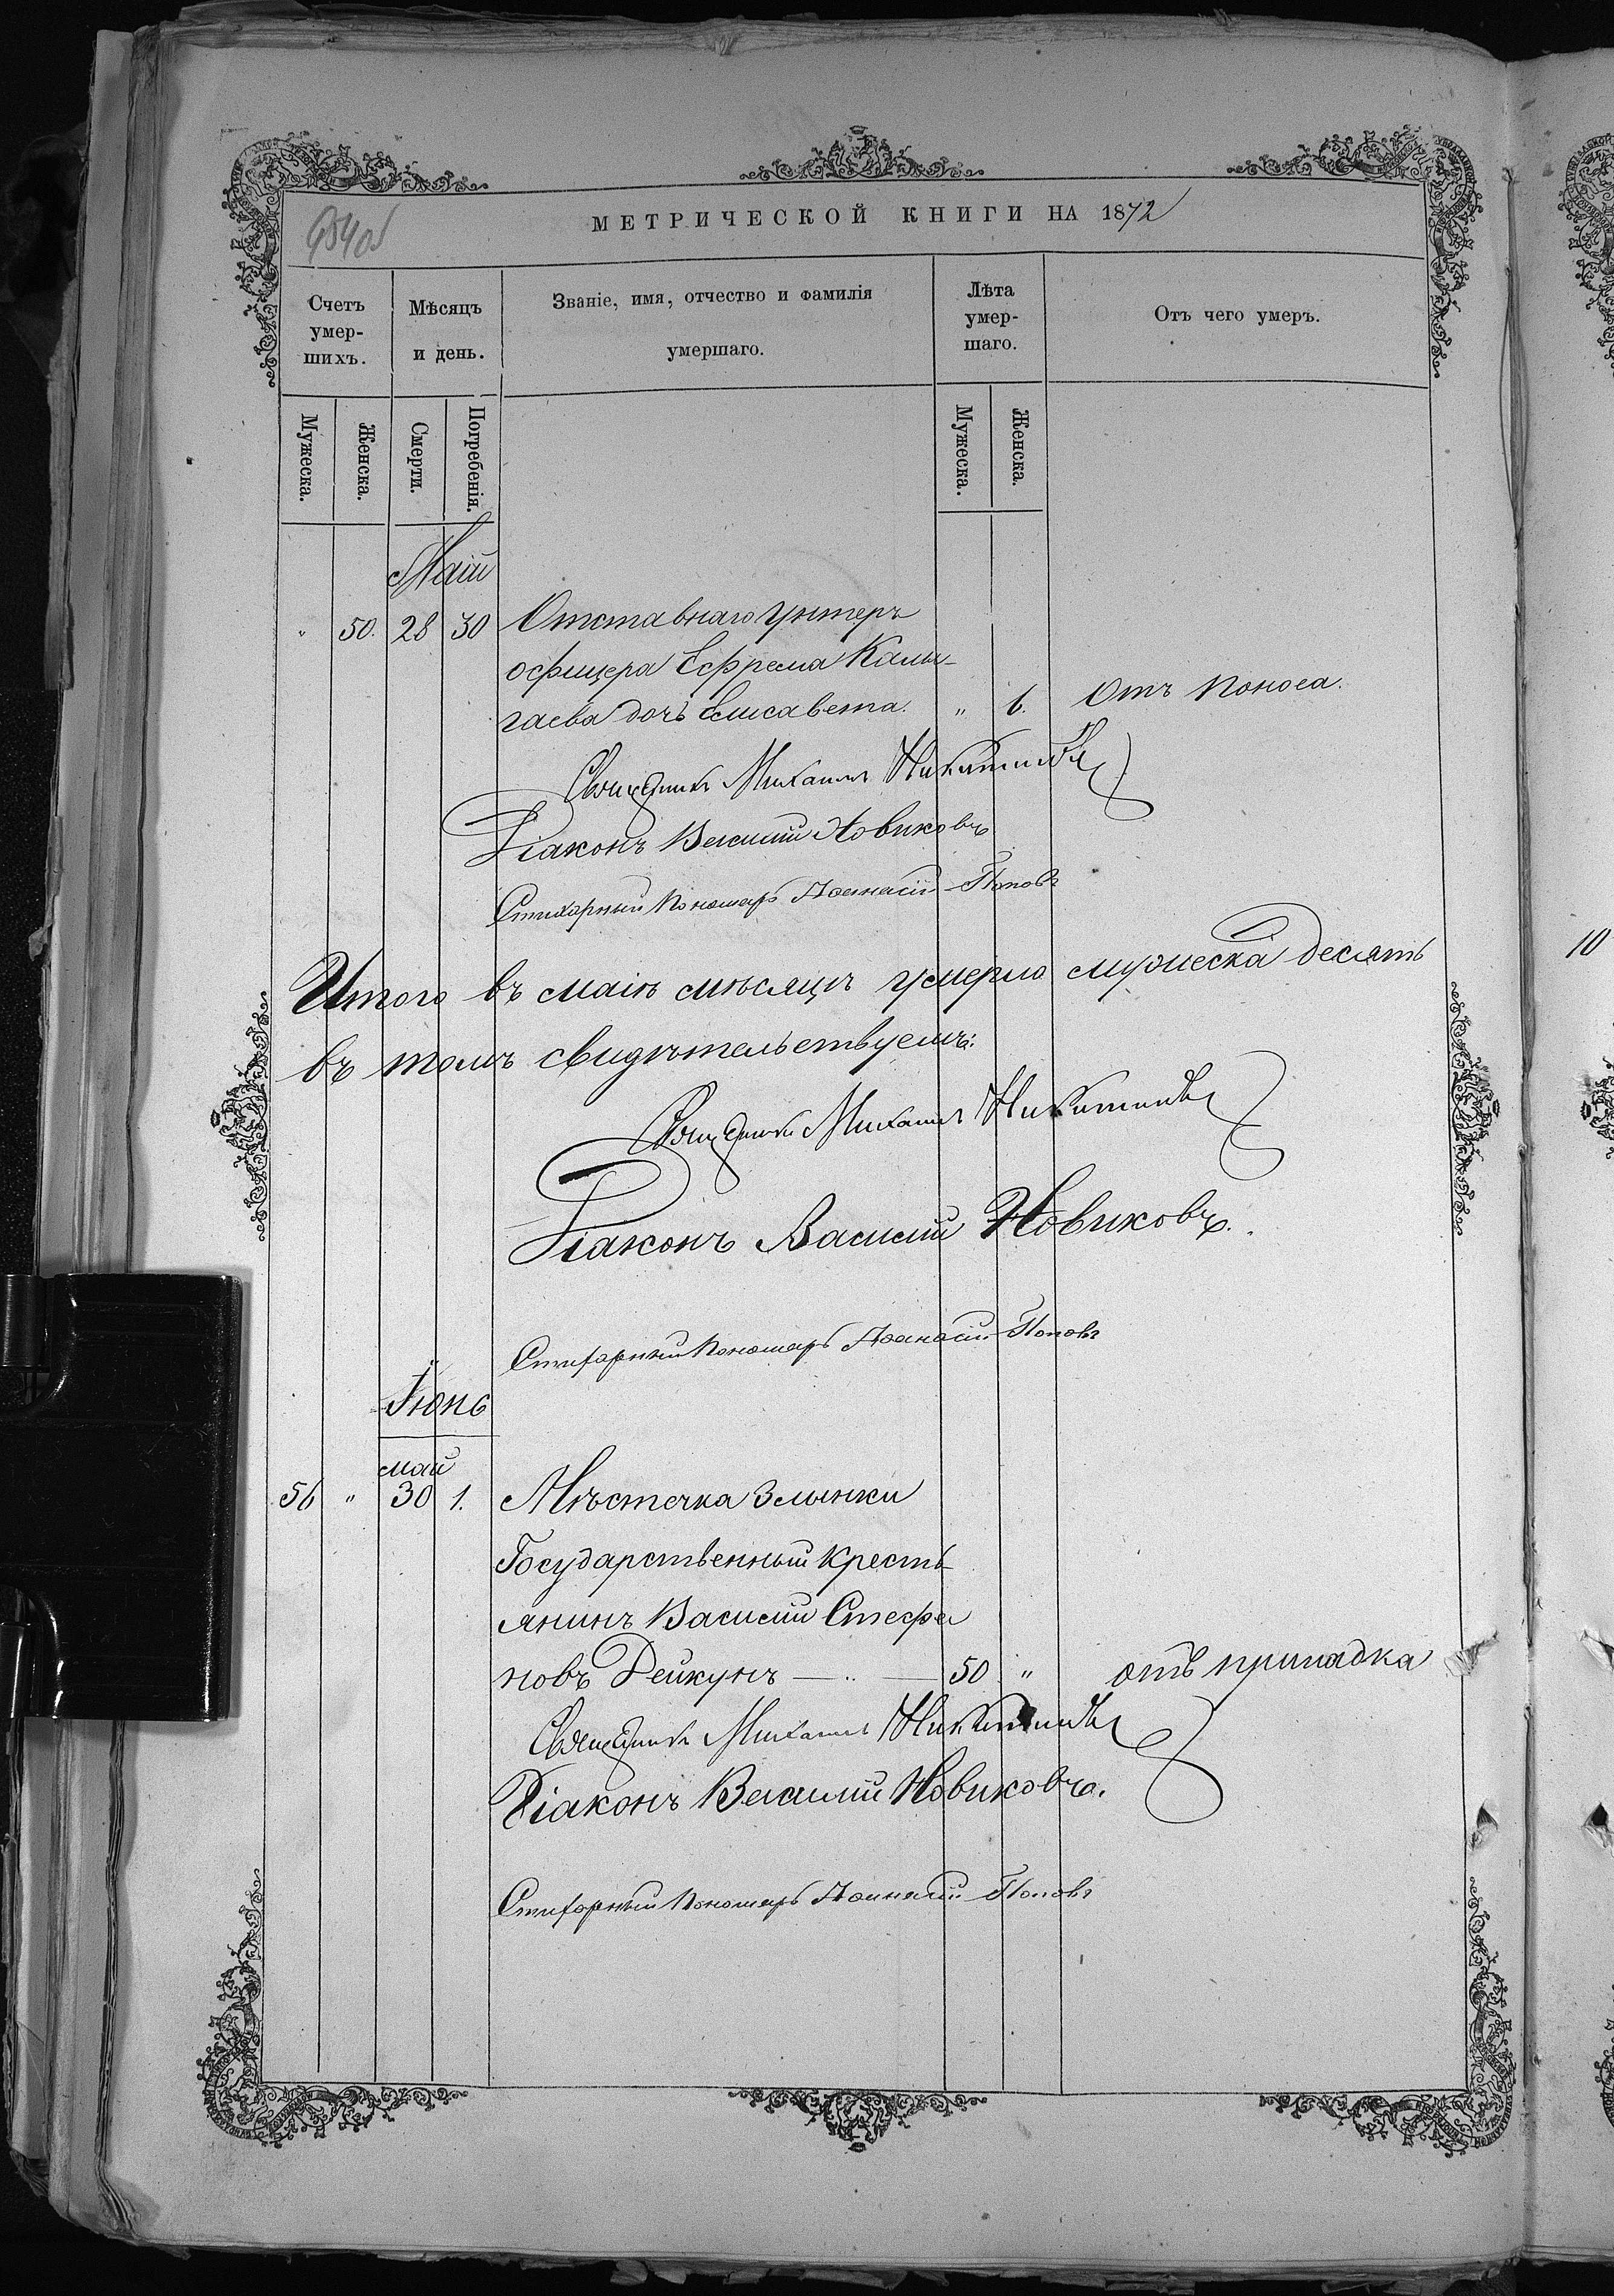 954об
МЕТРИЧЕСКОЙ КНИГИ НА 1872
Счетъ умер-шихъ.
Мѣсяцъ и день.
Званіе, имя, отчество и фамилія умершаго.
Лѣта умер-шаго.
Отъ чего умеръ.
Мужеска.
Женска.
Смерти.
Погребенія.
Мужеска.
Женска.
Май
" 50. 28 30 Отставнаго Унтеръ
офицера Ефрема Калы-
гаева дочь Елисавета. " 6. Отъ поноса.
Священникъ Михаилъ Никитинъ
Діаконъ Василій Новиковъ
Стихарный Пономарь Аѳанасій Поповъ
Итого въ маіѣ мѣсяцѣ умерло мужеска десять
въ томъ свидѣтельствуемъ:
Священникъ Михаилъ Никитинъ
Діаконъ Василій Новиковъ.
Стихарный Пономарь Аѳанасій Поповъ
Іюнь
май
56 " 30 1. Мѣстечка Злынки
Государственный Кресть-
янинъ Василій Стефа
новъ Рейкунъ — .. — 50 " отъ припадка
Священникъ Михаилъ Никитинъ
Діаконъ Василій Новиковъ.
Стихарный Пономарь Аѳанасій Поповъ
10